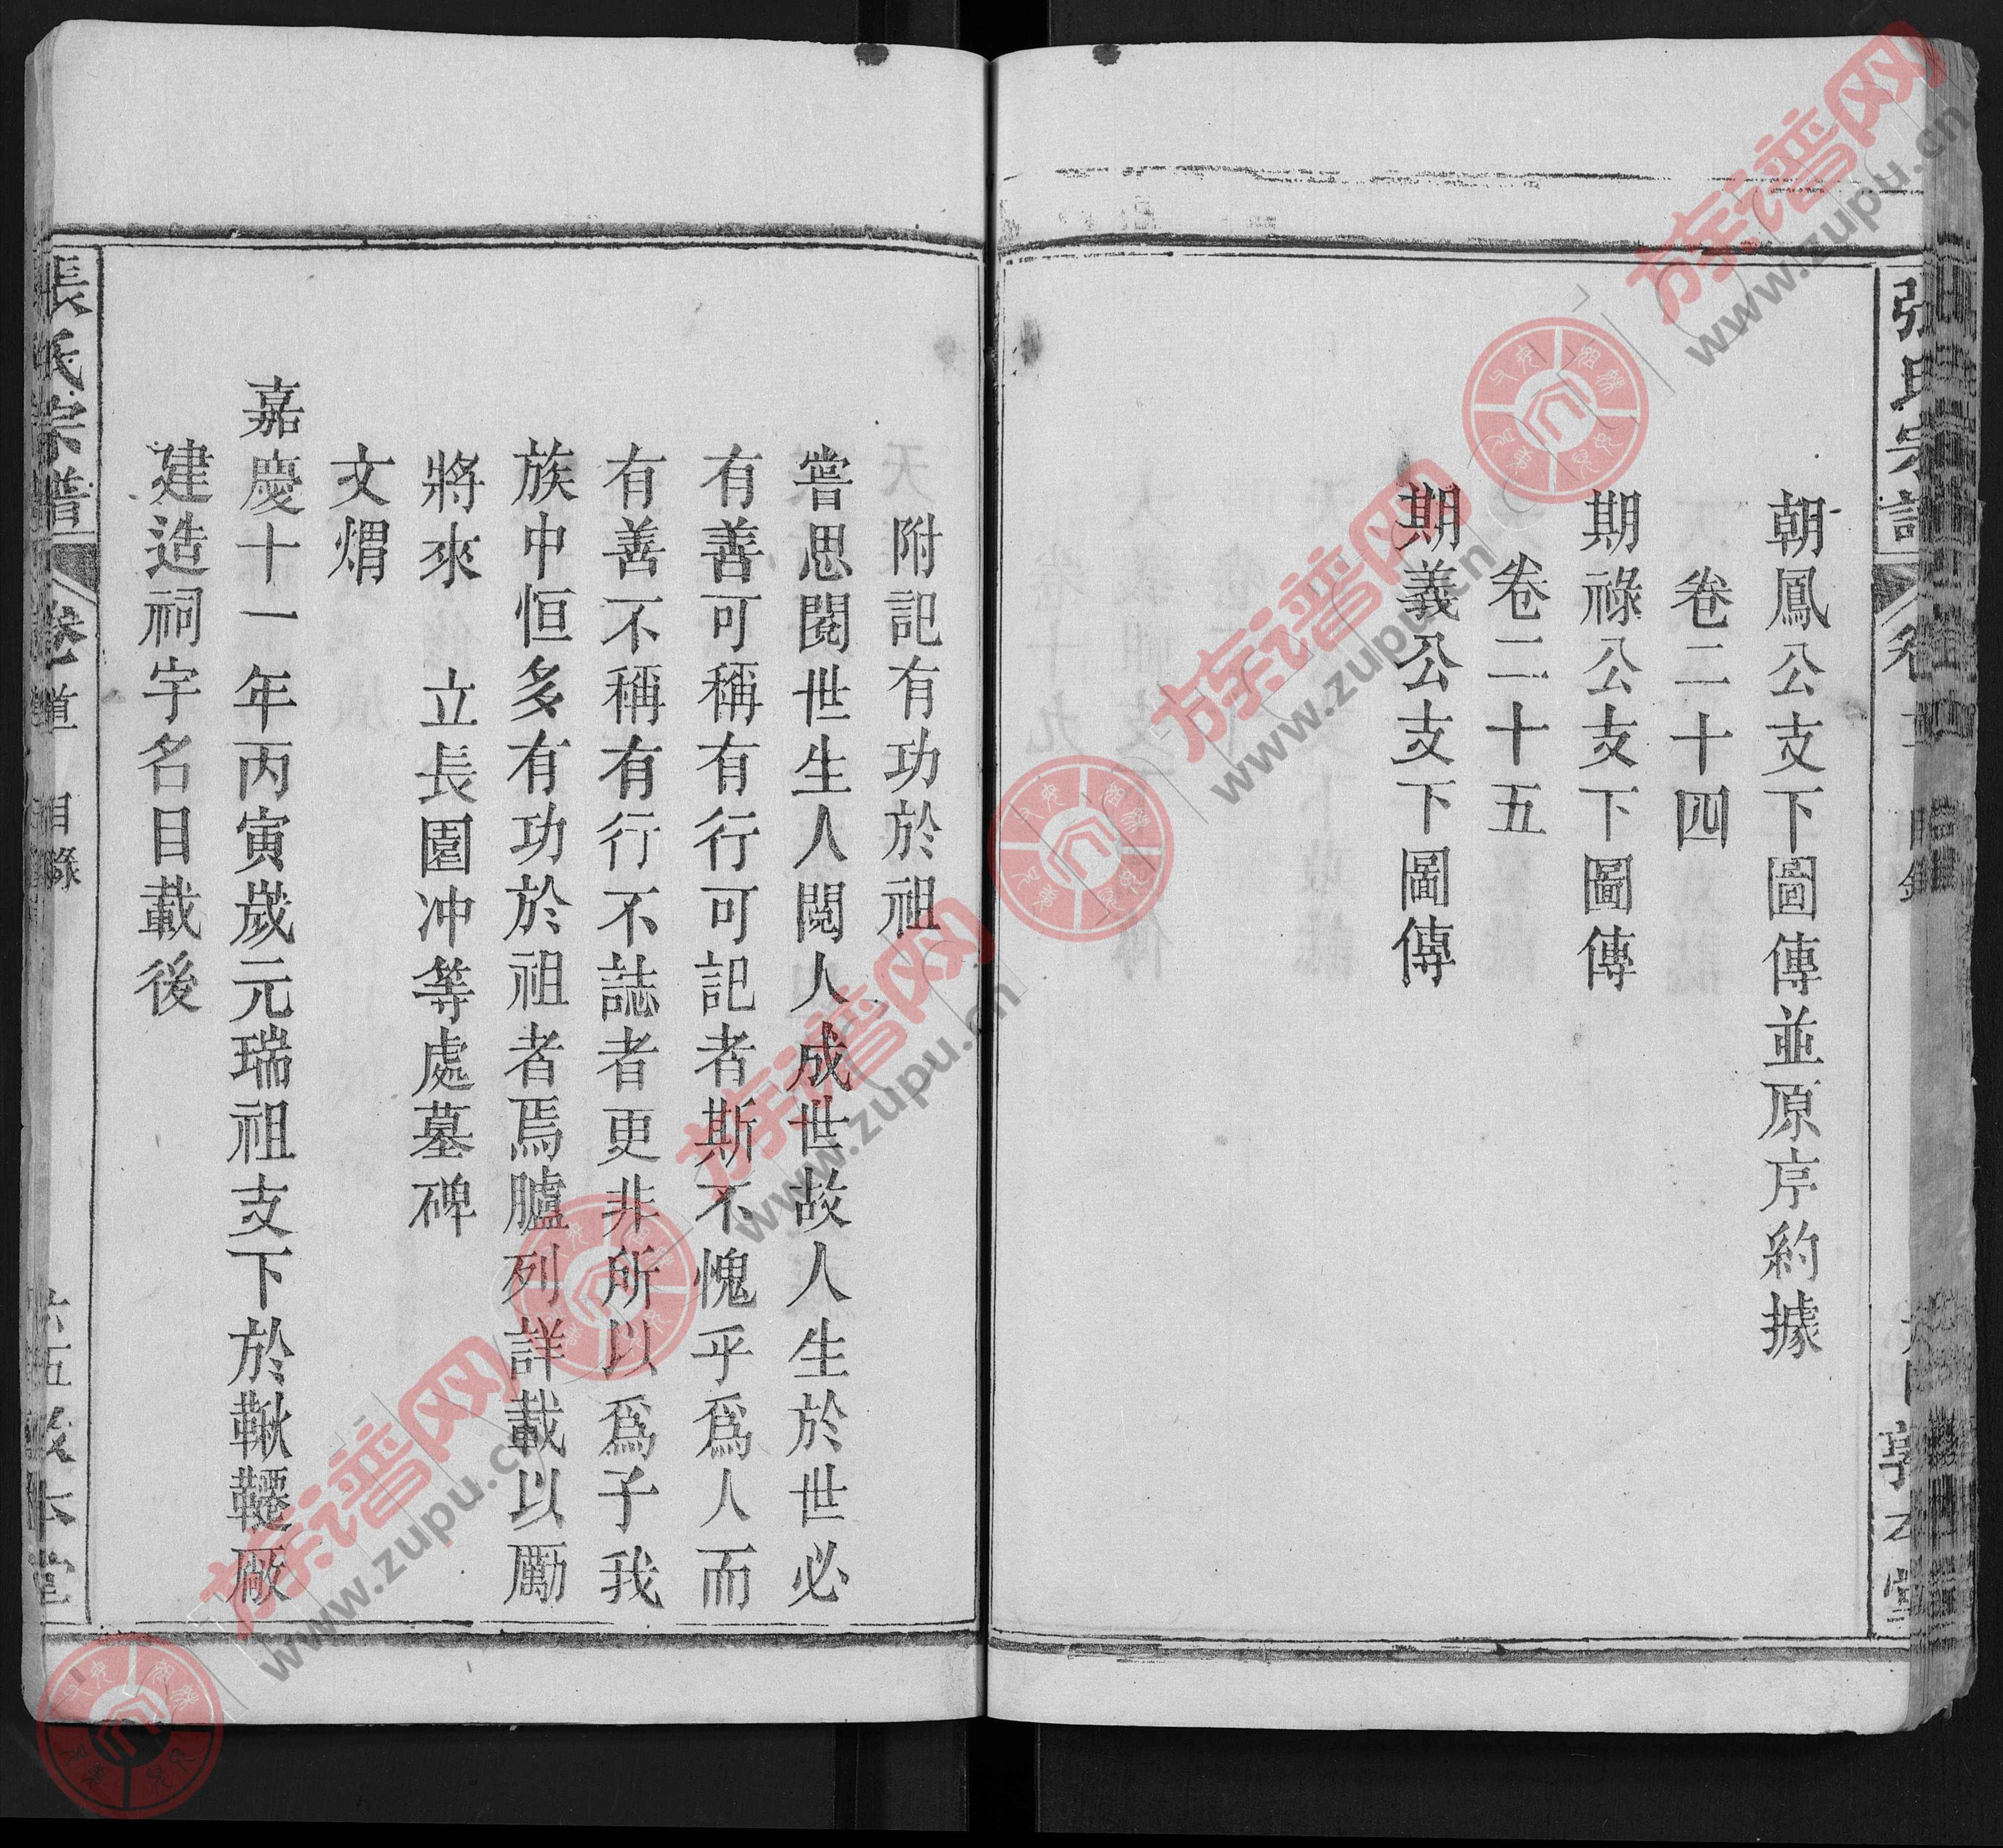 朝鳳公支下圖傳並原序約據
卷二十四
期祿公支下圖傳
卷二十五
期義公支下圖傳
附記有功於祖
嘗思閱世生人閱人成世故人生於世必
有善可稱有行可記者斯不愧乎爲人而
有善不稱有行不誌者更非所以爲子我
族中恒多有功於祖者焉臚列詳載以勵
將來 立長園冲等處墓碑
文焻
嘉慶十一年丙寅歲元瑞祖支下於鞦韆廠
建造祠宇名目載後
張氏宗譜 卷 目錄
族谱网
www.zupu.cn
族谱网
www.zupu.cn
族谱网
www.zupu.cn
族谱网
www.zupu.cn